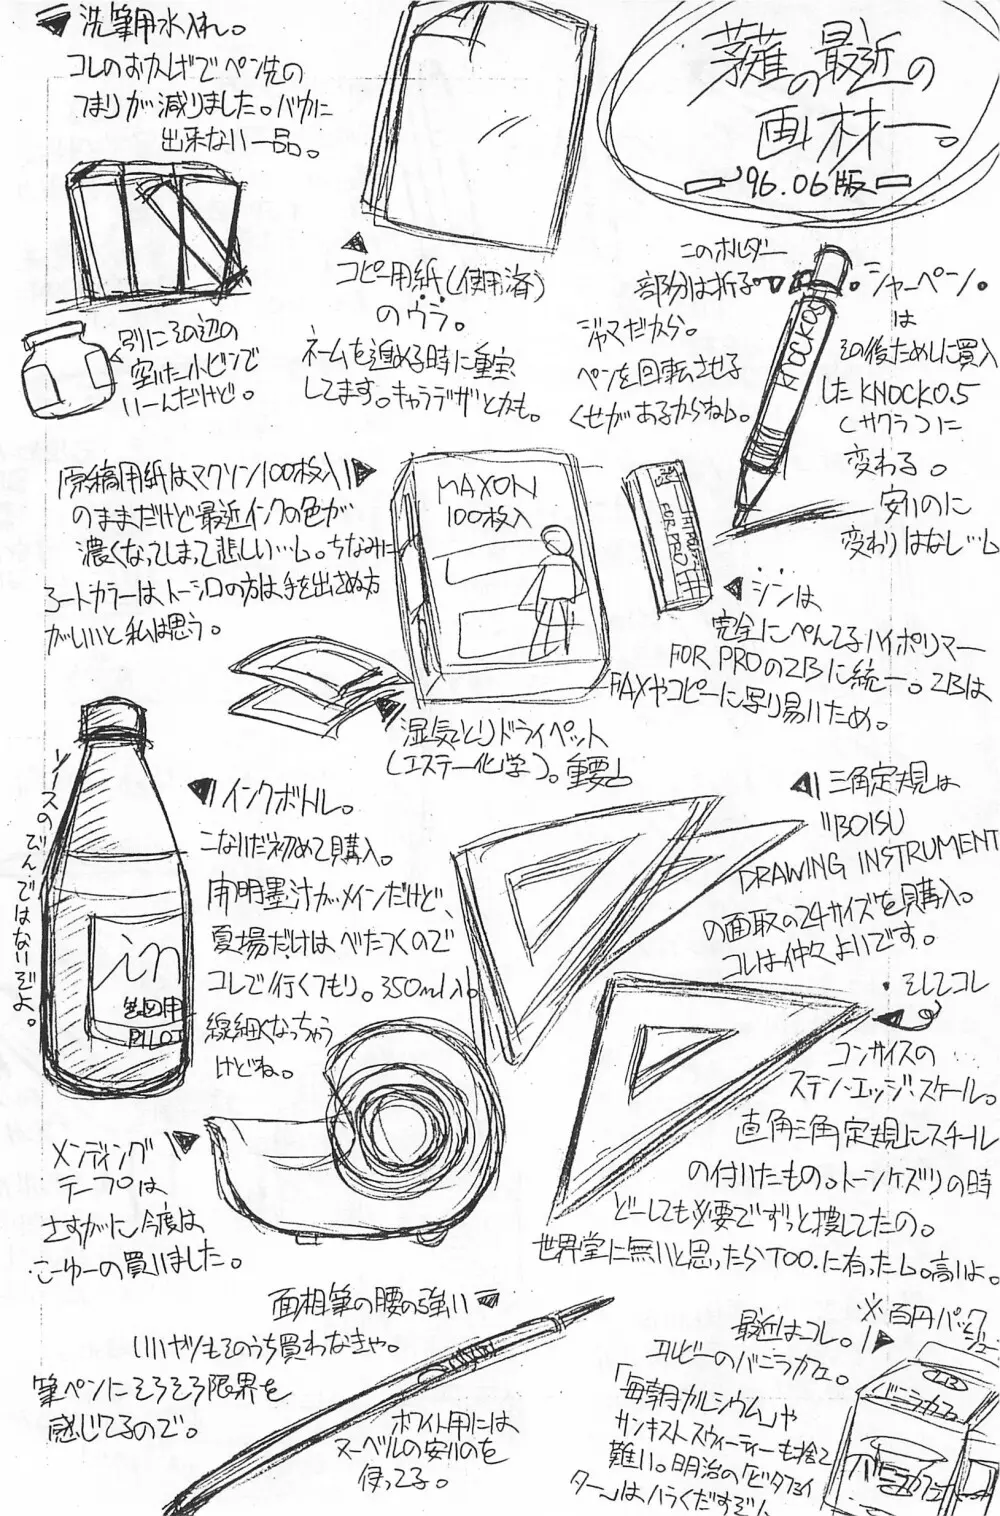 茅薙の最近の
画材ー。
'96.06版
洗筆用水入れ。
コレのおかげでペン先の
つまりが減りました。バカに
出来ない一品。
別にその辺の
空いた小ビンで
いーんだけど。
コピー用紙(使用済)
のウラ。
ネームを進める時に重宝
してます。キャラデザとかも。
このホルダー
部分は折る。
ジャマだから。
ペンを回転させる
くせがあるからねム。
シャーペン。
は
その後ためしに買入
したKNOCK0.5
(サクラ)に
変わる。
安いのに
変わりはなし…ム
KNOCK 0.5
原稿用紙はマクソン100枚入り
のままだけど最近インクの色が
濃くなってしまって悲しい…ム。ちなみに
アートカラーは、トーシロの方は手を出さぬ方
がいいと私は思う。
MAXON
100枚入
FOR PRO
ジンは
完全にぺんてるハイポリマー
FOR PROの2Bに統一。2Bは
FAXやコピーに写り易いため。
湿気とりドライペット
(エステー化学)。重要ム
インクボトル。
こないだ初めて購入。
開明墨汁がメインだけど、
夏場だけはべたつくので
コレで行くつもり。350ml入り。
線細くなっちゃう
けどね。
ソースのびんではないぞよ。
in
製図用
PILOT
三角定規は
"BOISU
DRAWING INSTRUMENT
の面取の24サイズを購入。
コレは仲々よいです。
・そしてコレ
コンサイスの
ステン・エッジ・スケール。
直角三角定規にスチール
の付いたもの。トーンケズリの時
どーしても必要でずっと捜してたの。
世界堂に無いと思ったらTOO.に有ったム。高いよ。
メンディング
テープは
さすがに今度は
こーゆーの買いました。
面相筆の腰の強い
いいヤツもそのうち買わなきゃ。
筆ペンにそろそろ限界を
感じてるので。
ホワイト用には
ヌーベルの安いのを
使ってる。
※百円パック
ジュー
最近はコレ。
エルビーのバニラカフェ。
「毎朝カルシウム」や
サンキストスウィーティーも捨て
難い。明治の「ビタファイ
ター」はハラくだすぞム
LB
バニラカフェ
バニラカフェ